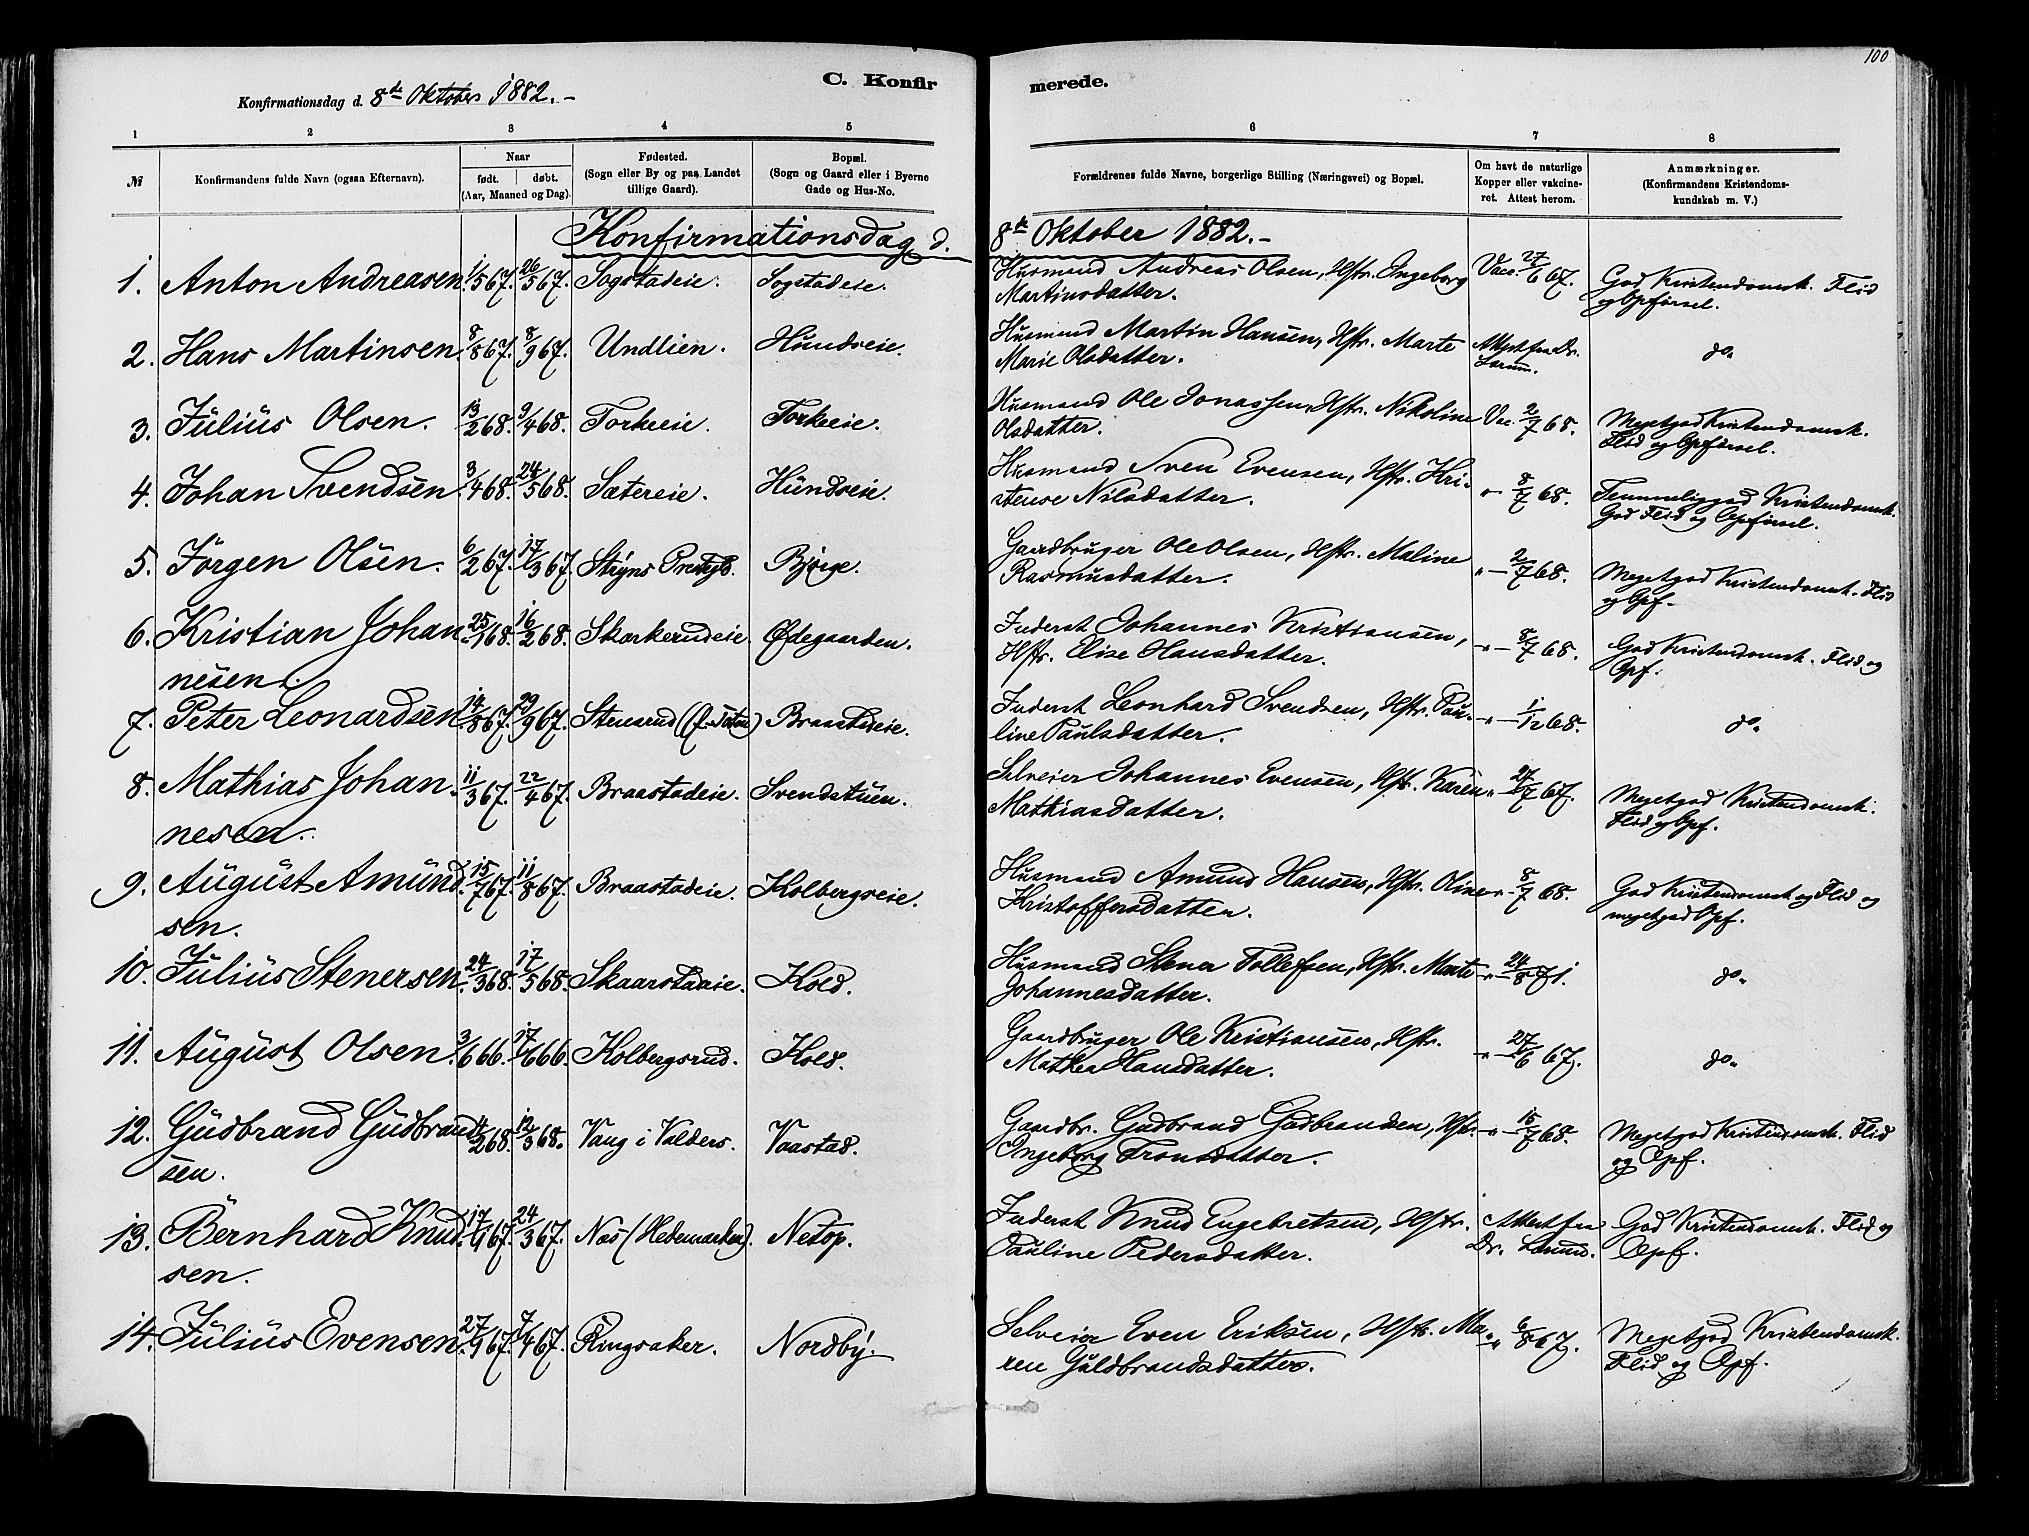 100
C. Konfir merede.
Konfirmationsdag d. 8de Oktober 1882.-
1 2 3 4 5 6 7 8
№ Konfirmandens fulde Navn (ogsaa Efternavn). Naar født. døbt. (Aar, Maaned og Dag). Fødested. (Sogn eller By og paa Landet tillige Gaard). Bopæl. (Sogn og Gaard eller i Byerne Gade og Hus-No. Forældrenes fulde Navne, borgerlige Stilling (Næringsvei) og Bopæl. Om havt de naturlige Kopper eller vakcineret. Attest herom. Anmærkninger. (Konfirmandens Kristendomskundskab m. V.)
Konfirmationsdag d. 8de Oktober 1882.-
1. Anton Andreasen. 1/5 67. 26/5 67. Sogstadeie. Sogstadeie. Husmand Andreas Olsen, Hstr. Ingeborg Vacc. 27/6 67. God Kristendomsk. Flid
Martinsdatter. og Opførsel.
2. Hans Martinsen. 8/8 67. 8/9 67. Undlien. Hundseie. Husmand Martin Hansen, Hstr. Marte Attest fra Dr. do.
Marie Olsdatter. Lorum.
3. Julius Olsen. 13/2 68. 9/4 68. Torkeeie. Torkeeie. Husmand Ole Jonassen, Hstr. Nikoline Vac. 2/7 68. Megetgod Kristendomsk.
Olsdatter. Flid og Opførsel.
4. Johan Svendsen. 3/4 68. 24/5 68. Sætereie. Hundseie. Husmand Sven Evensen, Hstr. Kri- " - 8/7 68. Temmeliggod Kristendomsk.
stense Nilsdatter. God Flid og Opførsel.
5. Jörgen Olsen. 6/2 67. 17/3 67. Stryns Prestgjb. Bjørge. Gaardbruger Ole Olsen, Hstr. Maline " - 2/7 68. Megetgod Kristendomsk. Flid
Rasmusdatter. og Opf.
6. Kristian Johan 25/1 68. 16/2 68. Skarkerudeie. Ødegaarden. Inderst Johannes Kristiansen, " - 8/7 68. God Kristendomsk. Flid og
nesen. Hstr. Elise Hansdatter. Opf.
7. Peter Leonardsen. 14/8 67. 29/9 67. Stensrud (Ø. Toten) Braastadeie. Inderst Leonhard Svendsen, Hstr. Pau- " - 1/12 68. do.
line Paulsdatter.
8. Mathias Johan 11/3 67. 22/4 67. Braastadeie. Svendstuen. Selveier Johannes Evensen, Hstr. Karen " 27/7 67. Megetgod Kristendomsk.
nesen. Mathiasdatter. Flid og Opf.
9. August Amund 15/7 67. 11/8 67. Braastadeie. Kolbergseie. Husmand Amund Hansen, Hstr. Oline " - 8/7 68. God Kristendomsk og Flid og
sen. Kristoffersdatter. megetgod Opf.
10. Julius Stenersen. 24/3 68. 17/5 68. Skaarstadeie. Kold. Husmand Stener Tollefsen, Hstr. Marte " - 24/8 71. do.
Johannesdatter.
11. August Olsen. 3/6 66. 17/6 66. Kolbergsrud. Kold. Gaardbruger Ole Kristiansen, Hstr. " - 27/6 67. do.
Mathea Hansdatter.
12. Gudbrand Gudbrand 11/2 68. 12/3 68. Vang i Valders. Vaastad. Gaardbr. Gudbrand Gudbrandsen, Hstr. " - 15/7 68. Megetgod Kristendomsk. Flid
sen. Ingeborg Tronsdatter. og Opf.
13. Bernhard Knud 17/1 67. 24/3 67. Næs (Hedemarken). Netop. Inderst Knud Engebretsen, Hstr. Attest fra God Kristendomsk. Flid og
sen. Pauline Pedersdatter. Dr. Lorum. Opf.
14. Julius Evensen. 27/1 67. 7/4 67. Ringsaker. Nordby. Selveier Even Eriksen, Hstr. Ma- " 6/8 67. Megetgod Kristendomsk.
ren Guldbrandsdatter. Flid og Opf.